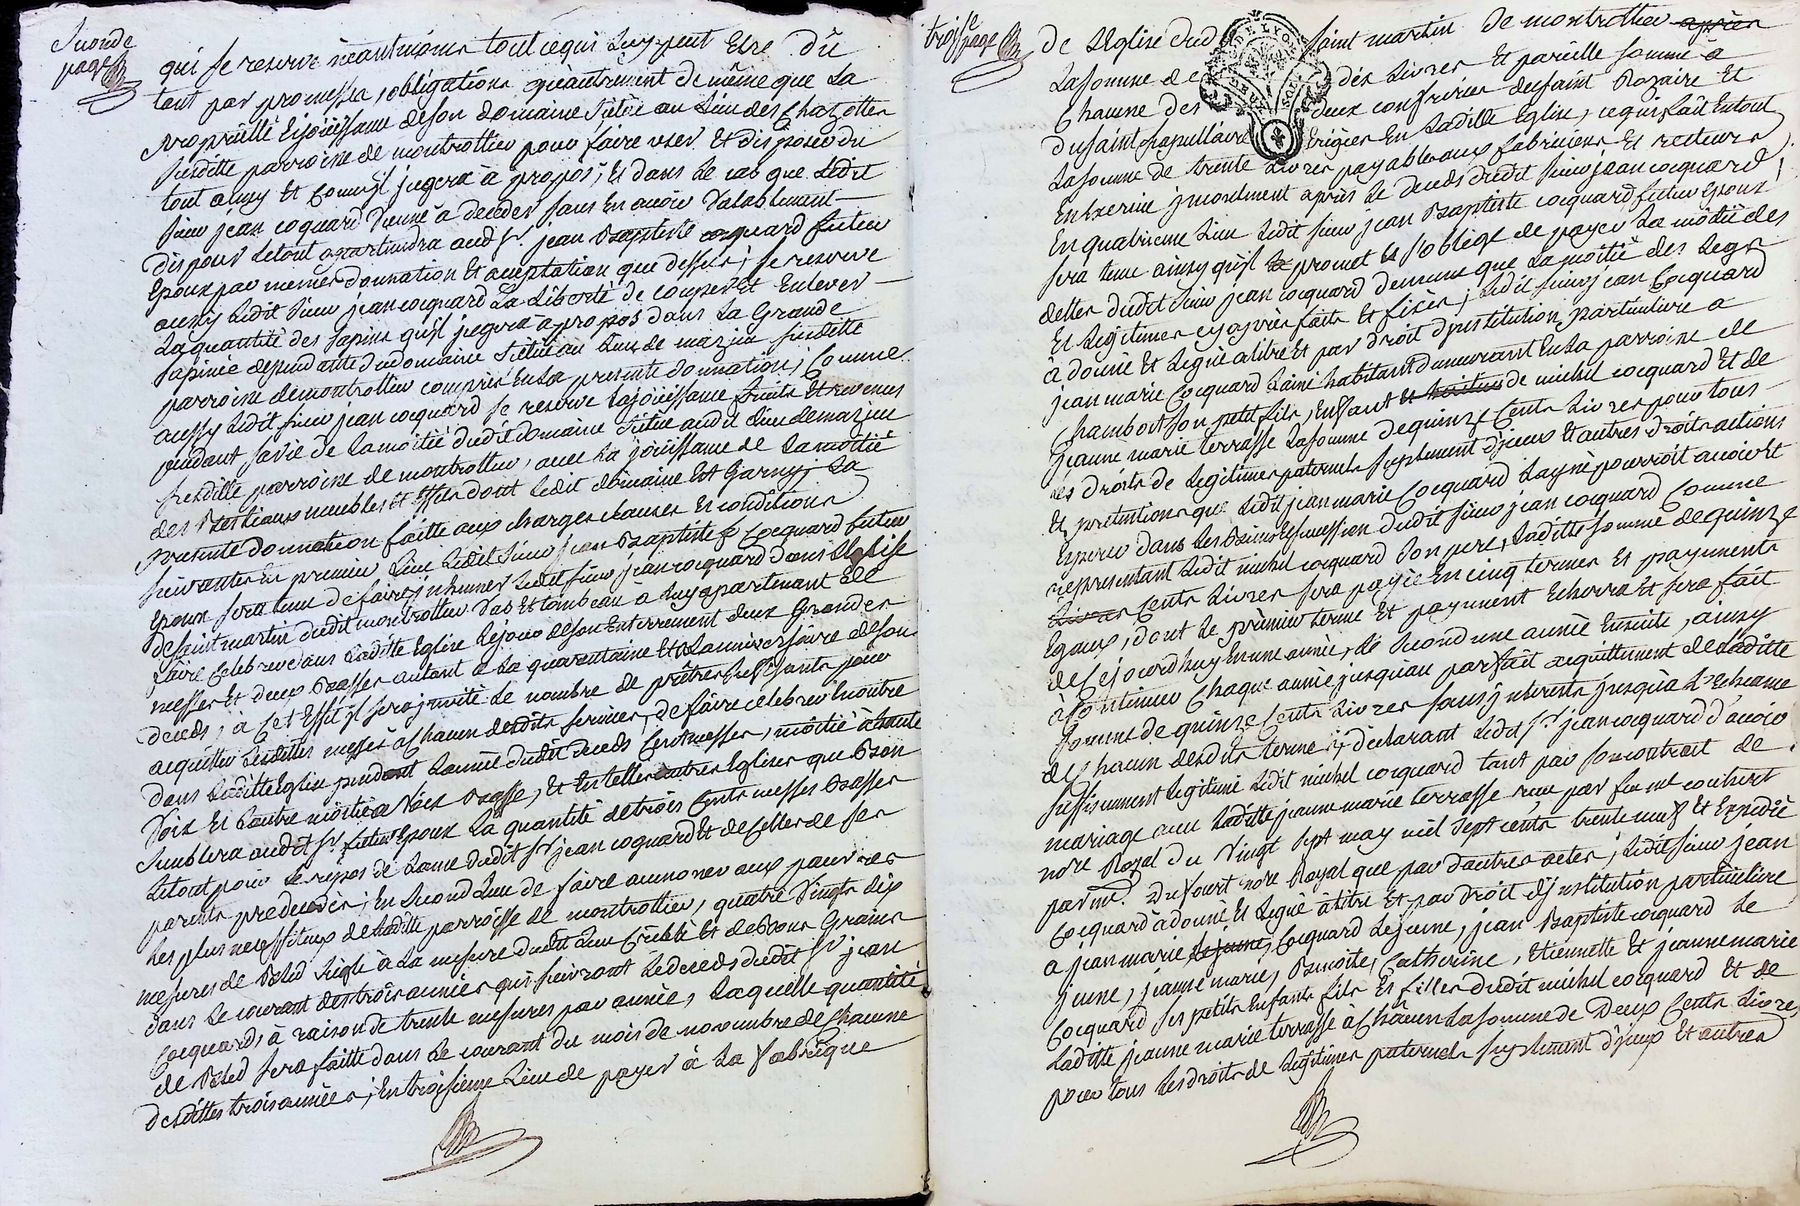 Seconde
page
qui se reserve néantmoins tout ce qui luy peut Etre Dû
tant par promesses, obligations qu'autrement de même que La
proprièté Ejoüissance de son domaine sitüé au Lieu des Chazottes
susditte parroisse de montrottier pour faire user Et disposer du
tout ainsy Et Comme jl jugera à propos; Et dans Le cas que Ledit
sieur jean coquard Vienne à deceder sans En avoir Valablement
disposé Letout apartiendra aud sr. jean Baptiste coquard futeur
Epoux par mêmes donnation Et aceptation que dessus; se reserve
aussy Ledit sieur jean cocquard La Liberté de Couper Et Enlever
La quantité des sapins qu'jl jugera àpropos dans La Grande
sapinée dependante dudomaine sitüé au Lieu de mazieu susditte
parroisse demontrottier comprise En La presente donnation, Comme
aussy Ledit sieur jean cocquard se reserve Lajoüissance fruits Et revenus
pendant sa vie de Lamoitié dudit domaine sitüé audit Lieu demazieu
susditte parroisse de montrottier, avec La joüissance de La moitié
des Bestiaux meubles Et Effets dont Ledit domaine Est Garny; La
presente donnation faitte aux charges clauses En conditions
suivantes En premier Lieu Ledit sieur jean Baptiste Cocquard futeur
Epoux sera tenu de faire jnhumer Ledit sieur jean cocquard dans L'Eglise
de saint martin dudit montrottier Vas Et tombeau à Luy apartenant De
faire Celebrer dans Laditte Eglise Lejour de son Enterrement deux Grandes
messes Et deux Basses autant à La quarantaine Et a Lanniversaire deson
deceds, à Cet Effet jl sera jnvité Le nombre de prêtres sufisants pour
acquitter Lesdittes messes à Chacun desdits services, de faire celebrer Enoutre
dans Laditte Eglise pendant Lannée dudit deceds Cent messes, moitié à haute
Voix Et L'autre moitié à Voix Basse, Et En telles autres Eglises que Bon
semblera audit sr. futeur Epoux La quantité de trois Cents messes Basses
Letout pour Le repos de Lame dudit sr jean coquard Et de Celles de ses
parents predecedés; En second Lieu de faire aumoner aux pauvres
Les plus necessiteux de Laditte parroisse de montrottier, quatre Vingts dix
mesures de Bled seigle à La mesure dudit Lieu Criblé Et de Bons Grains
dans Le courant des trois années qui suivront Ledeceds dudit sr jean
Cocquard, à raison de trente mesures par année, Laquelle quantité
de Bled sera faitte dans Le courant du mois de novembre de Chacune
desdittes trois années; En troisieme Lieu de payer à La fabrique
troise
page
de L'Eglise dud saint martin de montrottier
LaSomme de dix Livres Et pareille somme à
Chacune des deux confreries du saint Rozaire Et
du saint scapullaire Erigées En Laditte Eglise, ce qui fait Entout
Lasomme de trente Livres payable aux fabriciens Et recteurs
En Exercice jncontinent après Le deceds dudit sieur jean cocquard;
En quatrieme Lieu Ledit sieur jean Baptiste cocquard futeur Epoux
sera tenu ainsy qu'jl promet Et s'oblige de payer La moitié des
dettes dudit sieur jean cocquard demême que La moitié des Legs
Et Legitimes cyaprès faits Et fixés; Ledit sieur jean Cocquard
à donné Et Legué àtitre Et par droit d'jnstitution particuliere à
jean marie Cocquard Lainé habitant Demeurant En La parroisse de
Chamboit son petit fils, Enfant de michel cocquard Et de
jeanne marie terrasse Lasomme de quinze Cents Livres pour tous
ses droits de Legitimes paternels suplement d'jceux Et autres droits actions
Et pretentions que Ledit jean marie Cocquard Layné pourroit avoir Et
Esperer dans Les Biens Et succession dudit sieur jean cocquard Comme
representant Ledit michel cocquard son pere, Laditte somme de quinze
Cents Livres sera payée En cinq termes Et payements
Egaux, dont Le premier terme Et payement Echerra Et sera fait
de Cejourdhuy En une année, Le second une année Ensuite, ainsy
à Continuer Chaque année jusqu'au parfait acquittement de Laditte
somme de quinze Cents Livres sans jnterests jusqu'à L'Echeance
de Chacun desdits termes; declarant Ledit sr. jean cocquard d'avoir
suffisamment Legitimé Ledit michel cocquard tant par son contrat de
mariage avec Laditte jeanne marie terrasse reçu par feu me coubert
nore Royal du Vingt sept may mil sept cents trente neuf Et Expedié
par me. Dufourt nore Royal que par d'autres actes; Ledit sieur jean
Cocquard à donné Et Legué à titre Et par droit d'jnstitution particuliere
à jean marie Cocquard Lejeune, jean Baptiste cocquard Le
jeune, jeanne marie, Benoite, Catherine, Etiennette Et jeanne marie
Cocquard ses petits Enfants fils Et filles dudit michel cocquard Et de
Laditte jeanne marie terrasse à Chacun Lasomme de Deux Cents Livres
pour tous Les droits de Legitimes paternels suplement d'jceux Et autres